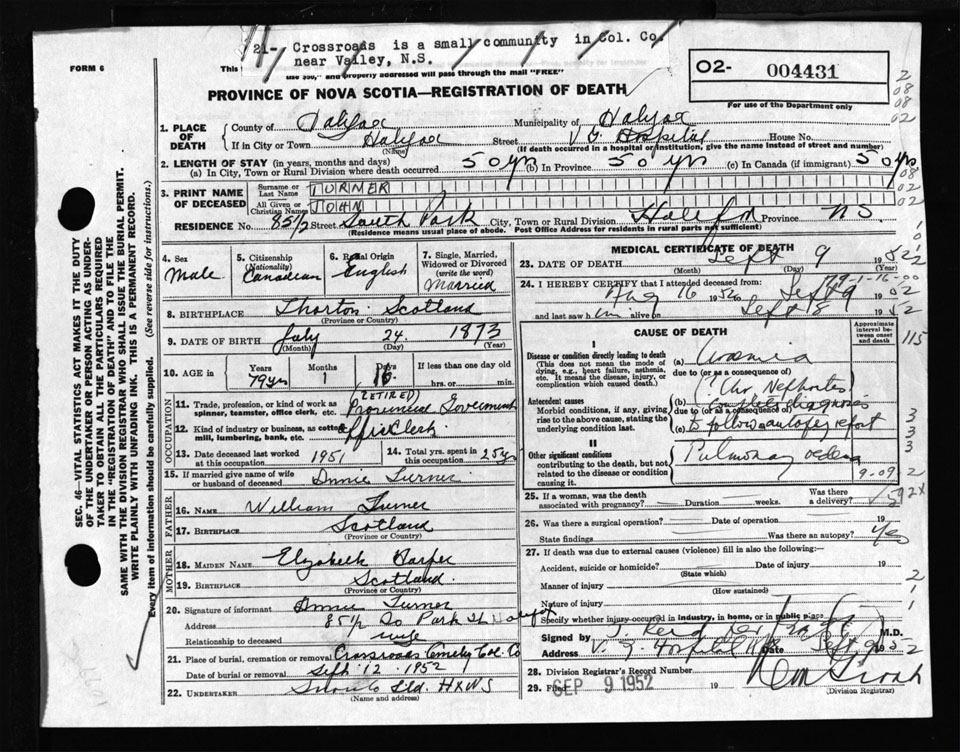 21- Crossroads is a small community in Col. Co.
near Valley, N.S.
FORM 6
This
use $50," and properly addressed will pass through the mail "FREE"
02- 004431
For use of the Department only
PROVINCE OF NOVA SCOTIA—REGISTRATION OF DEATH
2
08
08
02
1. PLACE OF DEATH
County of Halifax Municipality of Halifax
If in City or Town Halifax Street V. G. Hospital House No.
(Name) (If death occurred in a hospital or institution, give the name instead of street and number)
2. LENGTH OF STAY (in years, months and days)
(a) In City, Town or Rural Division where death occurred 50 yrs (b) In Province 50 yrs (c) In Canada (if immigrant) 50 yrs
08
02
02
3. PRINT NAME OF DECEASED
Surname or Last Name TURNER
All Given or Christian Names JOHN
RESIDENCE No. 85 1/2 Street South Park City, Town or Rural Division Halifax Province N.S.
(Residence means usual place of abode. Post Office Address for residents in rural parts not sufficient)
4. Sex Male
5. Citizenship (Nationality) Canadian
6. English
7. Single, Married, Widowed or Divorced (write the word) Married
8. BIRTHPLACE Thorton Scotland
(Province or Country)
9. DATE OF BIRTH July 24 1873
(Month) (Day) (Year)
10. AGE in Years Months Days If less than one day old
79 yrs 1 16 hrs. or min.
OCCUPATION
11. Trade, profession, or kind of work as spinner, teamster, office clerk, etc. (RETIRED) Provincial Government
12. Kind of industry or business, as cotton mill, lumbering, bank, etc. Office Clerk
13. Date deceased last worked at this occupation 1951
14. Total yrs. spent in this occupation 25 yrs
15. If married give name of wife or husband of deceased Annie Turner
FATHER
16. NAME William Turner
17. BIRTHPLACE Scotland
(Province or Country)
MOTHER
18. MAIDEN NAME Elizabeth Harper
19. BIRTHPLACE Scotland
(Province or Country)
20. Signature of informant Annie Turner
Address 85 1/2 So Park St Halifax
Relationship to deceased wife
21. Place of burial, cremation or removal Crossroads Cemetery Col. Co
Date of burial or removal Sept 12 1952
22. UNDERTAKER Ltd. HXNS
(Name and address)
MEDICAL CERTIFICATE OF DEATH
23. DATE OF DEATH Sept 9 1952
(Month) (Day) (Year)
24. I HEREBY CERTIFY that I attended deceased from:
79-1-16-00
Aug 16 1952 to Sept 9 1952
and last saw him alive on Sept 8 1952
115
CAUSE OF DEATH
Approximate interval between onset and death
I
Disease or condition directly leading to death (a) Uraemia
(This does not mean the mode of dying, e.g., heart failure, asthenia, etc. It means the disease, injury, or complication which caused death.)
due to (or as a consequence of)
(? Chr. Nephritis)
Antecedent causes (b) Complete diagnosis
Morbid conditions, if any, giving rise to the above cause, stating the underlying condition last.
due to (or as a consequence of)
(c) to follow autopsy report
3
3
3
II
Other significant conditions Pulmonary oedema
contributing to the death, but not related to the disease or condition causing it.
9-09-2
592X
25. If a woman, was the death associated with pregnancy? Duration weeks. Was there a delivery?
26. Was there a surgical operation? Date of operation 19
State findings Was there an autopsy? Yes
27. If death was due to external causes (violence) fill in also the following:—
Accident, suicide or homicide? Date of injury 19
(State which)
2
Manner of injury
(How sustained)
1
Nature of injury
Specify whether injury occurred in industry, in home, or in public place
Signed by M.D.
Address V. G. Hospital Date Sept 9 1952
28. Division Registrar's Record Number
29. Filed SEP 9 1952 19
(Division Registrar)
SEC. 46—VITAL STATISTICS ACT MAKES IT THE DUTY
OF THE UNDERTAKER OR PERSON ACTING AS UNDER-
TAKER TO OBTAIN ALL THE PARTICULARS REQUIRED
IN THE "REGISTRATION OF DEATH" AND TO FILE THE
SAME WITH THE DIVISION REGISTRAR WHO SHALL ISSUE THE BURIAL PERMIT.
WRITE PLAINLY WITH UNFADING INK. THIS IS A PERMANENT RECORD.
Every item of information should be carefully supplied. (See reverse side for instructions.)